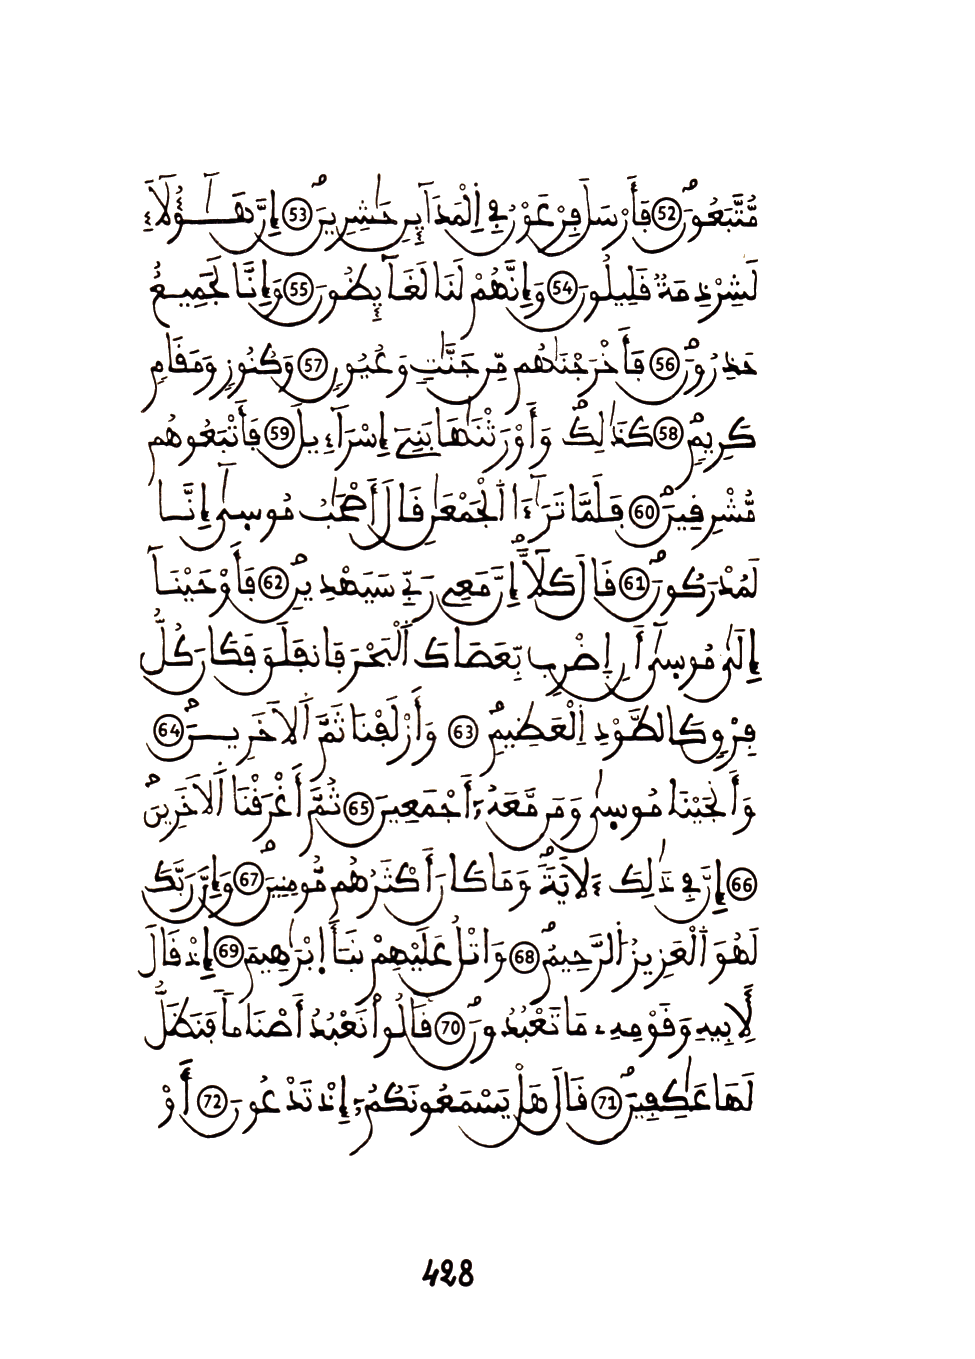 مُّتَّبَعُونَ 52 فَأَرْسَلَ فِرْعَوْنُ فِے اِ۬لْمَدَآئِنِ حَٰشِرِينَ 53 إِنَّ هَٰٓؤُلَآءِ
لَشِرْذِمَةٞ قَلِيلُونَ 54 وَإِنَّهُمْ لَنَا لَغَآئِظُونَ 55 وَإِنَّا لَجَمِيعٌ
حَذِرُونَ 56 فَأَخْرَجْنَٰهُم مِّن جَنَّٰتٖ وَعُيُونٖ 57 وَكُنُوزٖ وَمَقَامٖ
كَرِيمٖ 58 كَذَٰلِكَ وَأَوْرَثْنَٰهَا بَنِےٓ إِسْرَآءِيلَ 59 فَأَتْبَعُوهُم
مُّشْرِقِينَ 60 فَلَمَّا تَرَٰٓءَا اَ۬لْجَمْعَٰنِ قَالَ أَصْحَٰبُ مُوسِىٰٓ إِنَّا
لَمُدْرَكُونَ 61 قَالَ كَلَّآ إِنَّ مَعِے رَبِّے سَيَهْدِينِ 62 فَأَوْحَيْنَآ
إِلَىٰ مُوسِىٰٓ أَنِ اِ۪ضْرِب بِّعَصَاكَ اَ۬لْبَحْرَ فَانفَلَقَ فَكَانَ كُلُّ
فِرْقٖ كَالطَّوْدِ اِ۬لْعَظِيمِ 63 وَأَزْلَفْنَا ثَمَّ اَ۬لَاخَرِينَ 64
وَأَنجَيْنَا مُوسِىٰ وَمَن مَّعَهُۥٓ أَجْمَعِينَ 65 ثُمَّ أَغْرَقْنَا اَ۬لَاخَرِينَ
66 إِنَّ فِے ذَٰلِكَ ءَلَايَةٗ وَمَا كَانَ أَكْثَرُهُم مُّومِنِينَ 67 وَإِنَّ رَبَّكَ
لَهُوَ اَ۬لْعَزِيزُ اُ۬لرَّحِيمُ 68 وَاتْلُ عَلَيْهِمْ نَبَأَ اِ۪بْرَٰهِيمَ 69 إِذْ قَالَ
لِأَبِيهِ وَقَوْمِهِۦ مَا تَعْبُدُونَ 70 قَالُواْ نَعْبُدُ أَصْنَاماٗ فَنَظَلُّ
لَهَا عَٰكِفِينَ 71 قَالَ هَلْ يَسْمَعُونَكُمُۥٓ إِذْ تَدْعُونَ 72 أَوْ
428